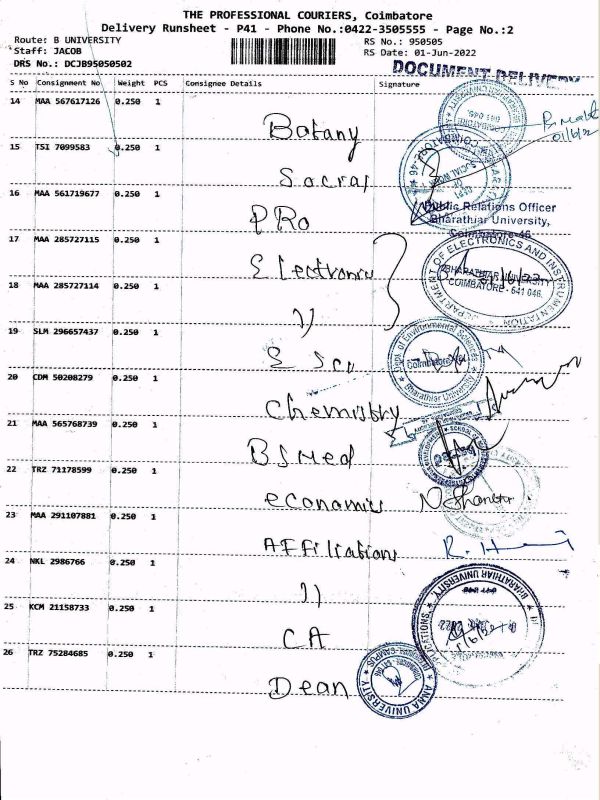 THE PROFESSIONAL COURIERS, Coimbatore
Delivery Runsheet - P41 - Phone No.:0422-3505555 - Page No.:2
Route: B UNIVERSITY
Staff: JACOB
DRS No.: DCJB95050502
RS No.: 950505
RS Date: 01-Jun-2022
DOCUMENT DELIVERY
S No Consignment No Weight PCS Consignee Details Signature
14 MAA 567617126 0.250 1
Botany
15 TSI 7099583 0.250 1
Social
16 MAA 561719677 0.250 1
PRO
Public Relations Officer
Bharathiar University,
Coimbatore-46
17 MAA 285727115 0.250 1
Electronics
DEPARTMENT OF ELECTRONICS AND INSTRUMENTATION
BHARATHIAR UNIVERSITY
COIMBATORE - 641 046.
18 MAA 285727114 0.250 1
11
19 SLM 296657437 0.250 1
E Sci
Dept. of Environmental Sciences
Bharathiar University
20 CDM 50208279 0.250 1
Chemistry
21 MAA 565768739 0.250 1
BSMed
22 TRZ 71178599 0.250 1
economics
23 MAA 291107881 0.250 1
AFFiliations R.
24 NKL 2986766 0.250 1
11
BHARATHIAR UNIVERSITY
25 KCM 21158733 0.250 1
CA
26 TRZ 75284685 0.250 1
Dean
ANNA UNIVERSITY